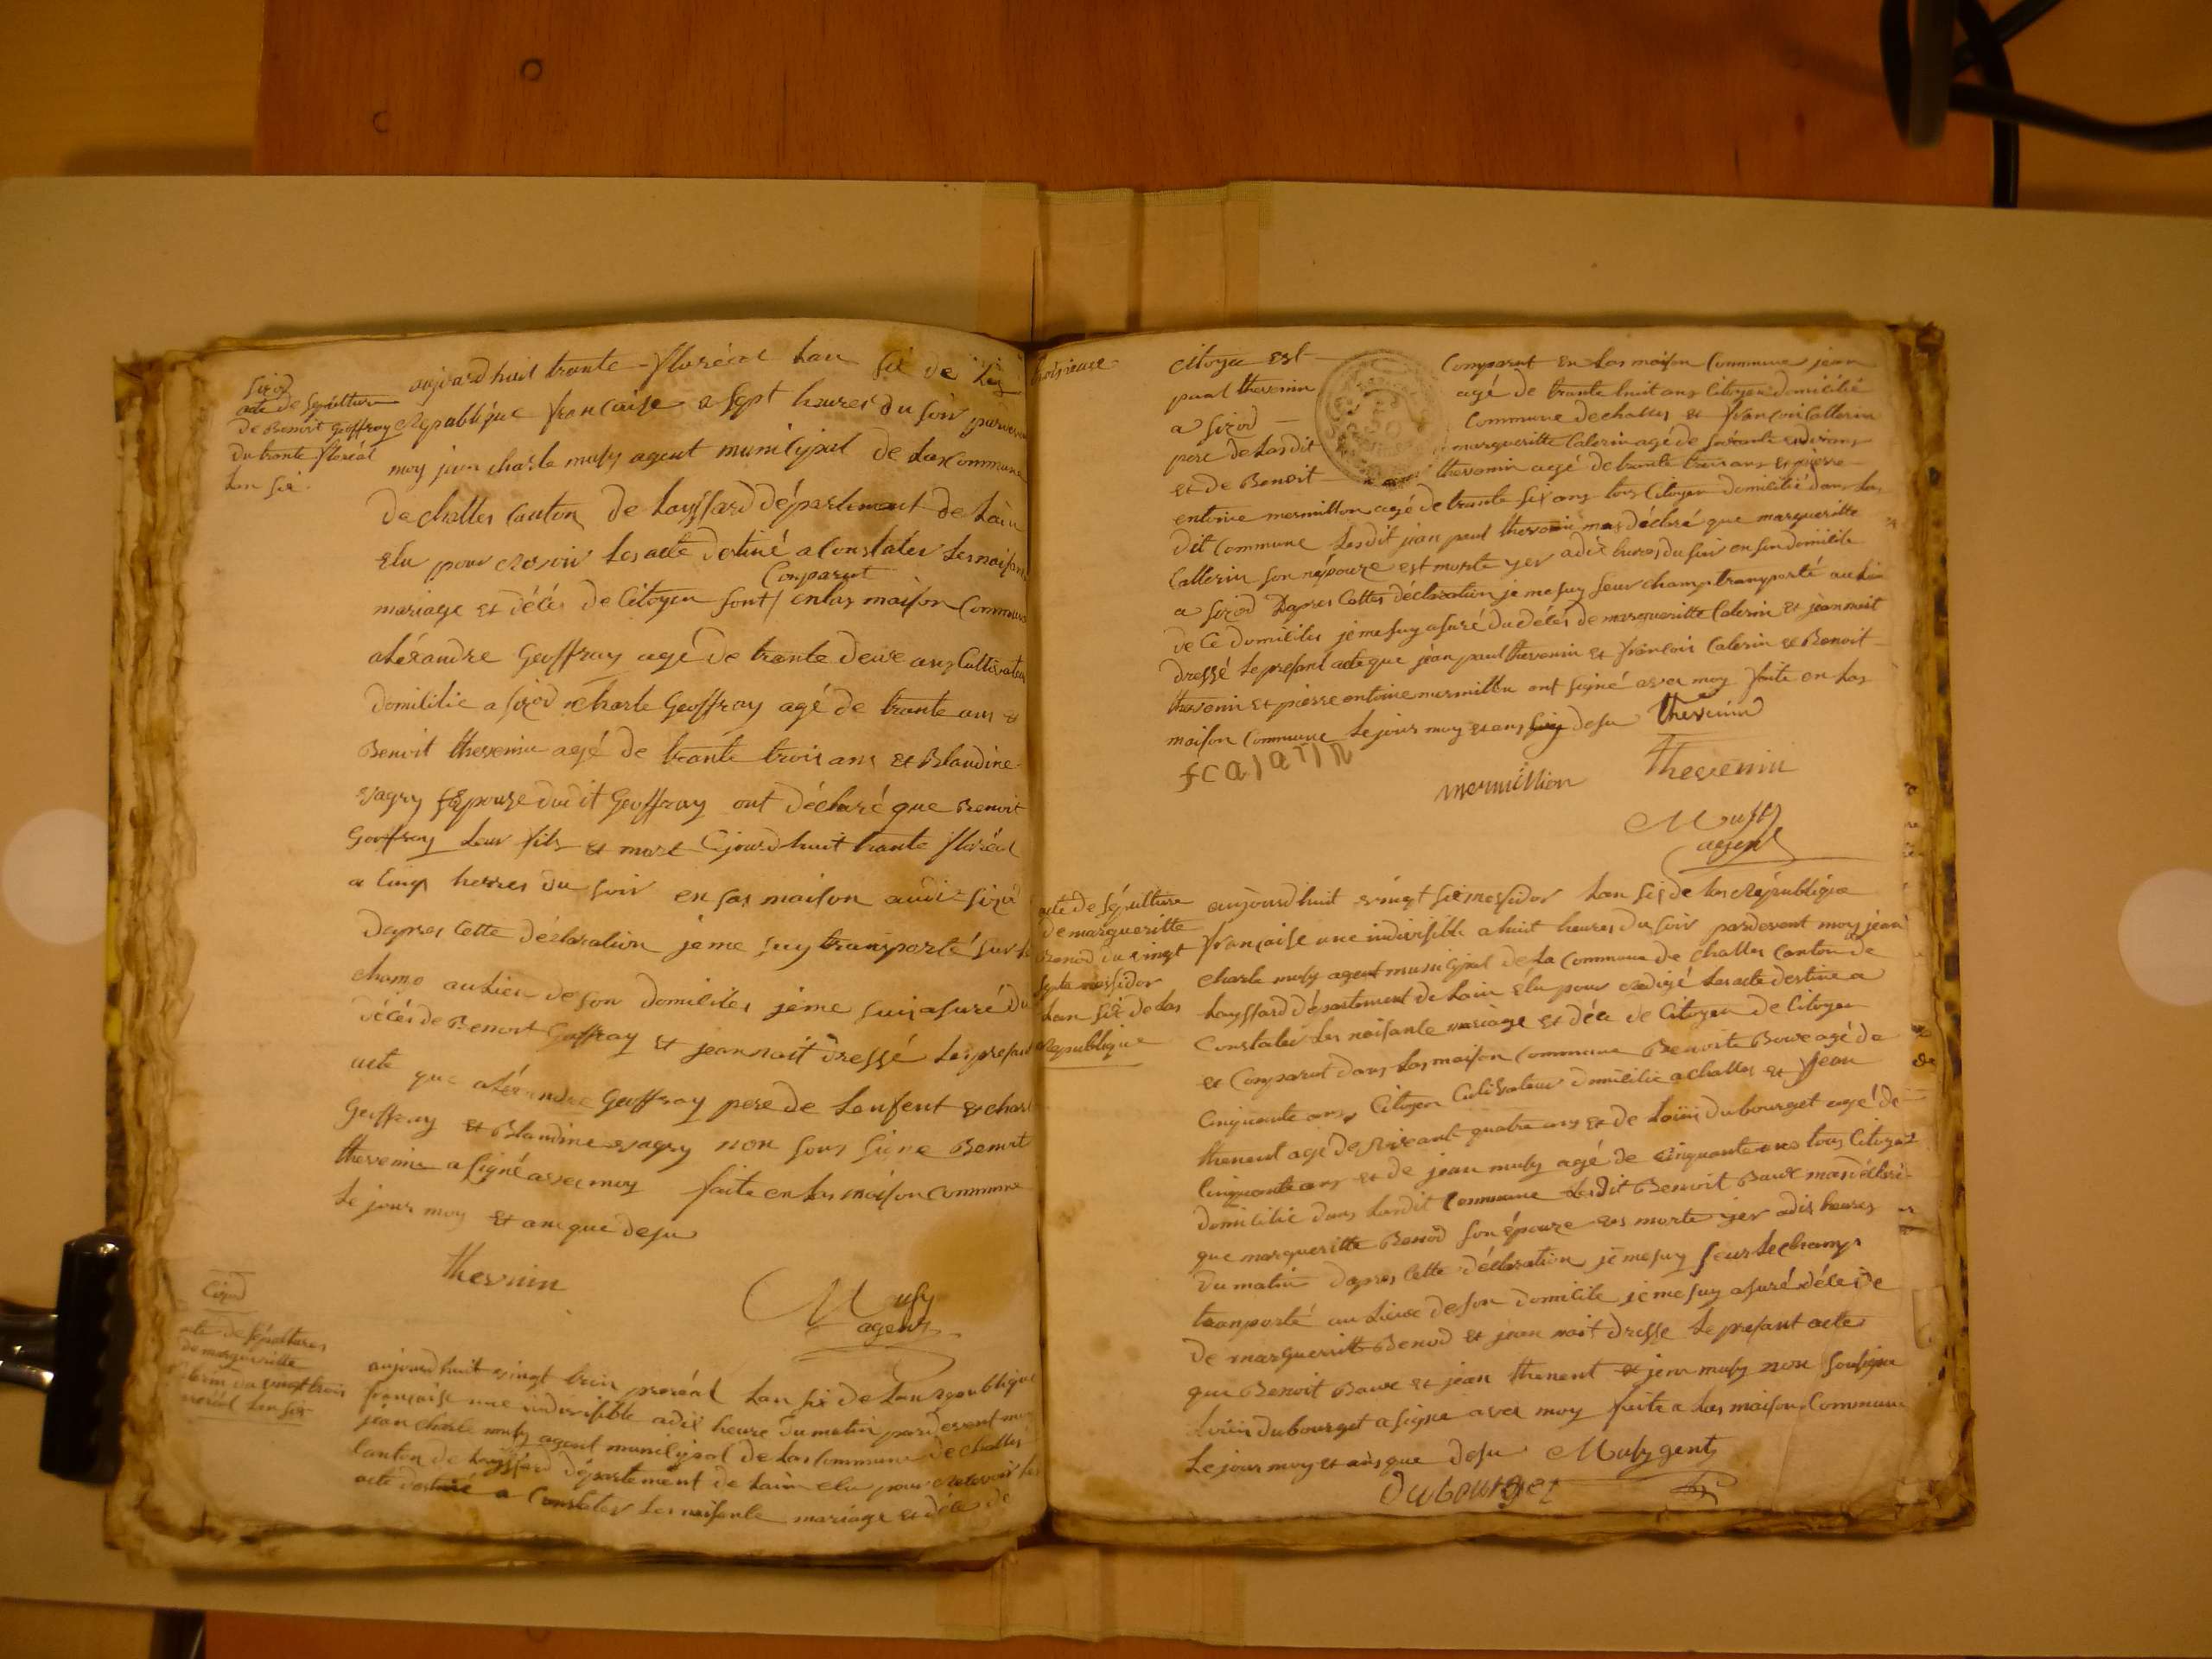 Sirod
acte de sepulture
de Benoit Geoffray
du trante floréal
Lan sis.
aujourdhuit trante floréal Lan sis de
République francaise a sept heures du soir
moy jean charle mufy agent municipal de Las Commune
de challes Canton de Loyssard département de Lain
Elu pour resevoir Les acte destiné a Constater Les
mariage et décés de Citoyen sont Comparut en las maison Commune
aléxandre Geoffray agé de trante deux ans Cultivateur
domicilie a sirod charle Geoffray agé de trante ans et
Benoit thevenin agé de trante trois ans et Blandine
vagry Epouze dudit Geoffray ont déclaré que Benoit
Geoffray Leur fils et mort Cjourdhuit trante floréal
a cinq herres du soir en sas maison audit sirod
dapres cette déclaration je me suy transporté sur le
champ au Lieu de son domiciles jéme suis asuré du
décés de Benoit Geoffray et jean nait dressé Les presant
acte que aléxandre Geoffray pere de Lenfent et charle
Geoffray et Blandine vagry non sous signe Benoit
thevenin a signé avec moy faite en Las maison Commune
Le jour moy et an que desu
thevenin
Mufy
agent
Cirod
acte de sépultures
de margueritte
du vingt trois
Lan sis
aujourdhuit vingt trois preréal Lan sis de Lan republique
francaise une indivisible adix heure du matin pardevent moy
jean charle mufy agent municipal de Las Commune de challes
Canton de Loyssard département de Lain elu pour recevoir les
acte destiné a Constater Les naisante mariage et déce de
Citoyen Est Comparut En Las maison Commune jean
paul thevenin agé de trante huit ans Citoyen domicilié
a sirod Commune de challes et françois Callerin
pere de Lasdit margueritte Calerin agé de
et de Benoit thevenin agé de trante trois ans et pierre
entoine mermillon agé de trante six ans tous Citoyen domicilié dans Las
dit Commune Lesdit jean paul thevenin mas déclaré que margueritte
Callerin son népouze est morte yer adix hures du soir en son domicile
a sirod Dapres Cettes déclaration je me suy seur champ transporté au Lieu
de Ce domiciles je me suy asuré du décés de margueritte Calerin et jean nait
dressé Le presant acte que jéan paul thevenin et françois Calerin et Benoit
thevenin et pierre entoine mermillon ont signé avec moy faite en Las
maison Commune Le jour moy et ans desu thevenin
fcalarin
mermillion thevenin
Mufy
agent
acte de sépulture
de margueritte
Benod du vingt
septe messidor
Lan sis de Las
Republique
aujourdhuit vingt sis messidor Lan sis de Las République
françaisse une indivisible a huit heures du soir pardevent moy jean
charle mufy agent municipal de La Commune de challes Canton de
Loyssard département de Lain élu pour redigé Les acte destine a
Constater Les naisante mariage et déce de Citoyen de Citoyen
et Comparut dans Las maison Commune Benoite agé de
Cinquante ans Citoyen Cultivateur domicilie a challes et jean
thenent agé de quatre ans et de Loüis Dubourget agé de
Cinquante ans et de jean mufy agé de Cinquante ans tous Citoyen
domicilié dans Lasdit Commune Lesdit Benoit Baux mas déclaré
que margueritte Benod son épouze es morte yer adix heures
du matin dapres Cette déclaration je me suy seur Le champs
tranporté au Lieux de son domicile je me suy asuré déce de
de margueritte Benod et jean nait dresse Le presant acte
que Benoit Baux et jean thenent et jean mufy non sousigne
Loüis Dubourget a signe avec moy faite a Las maison Commune
Le jour moy et ans que desu Mufy gent
Dubourget